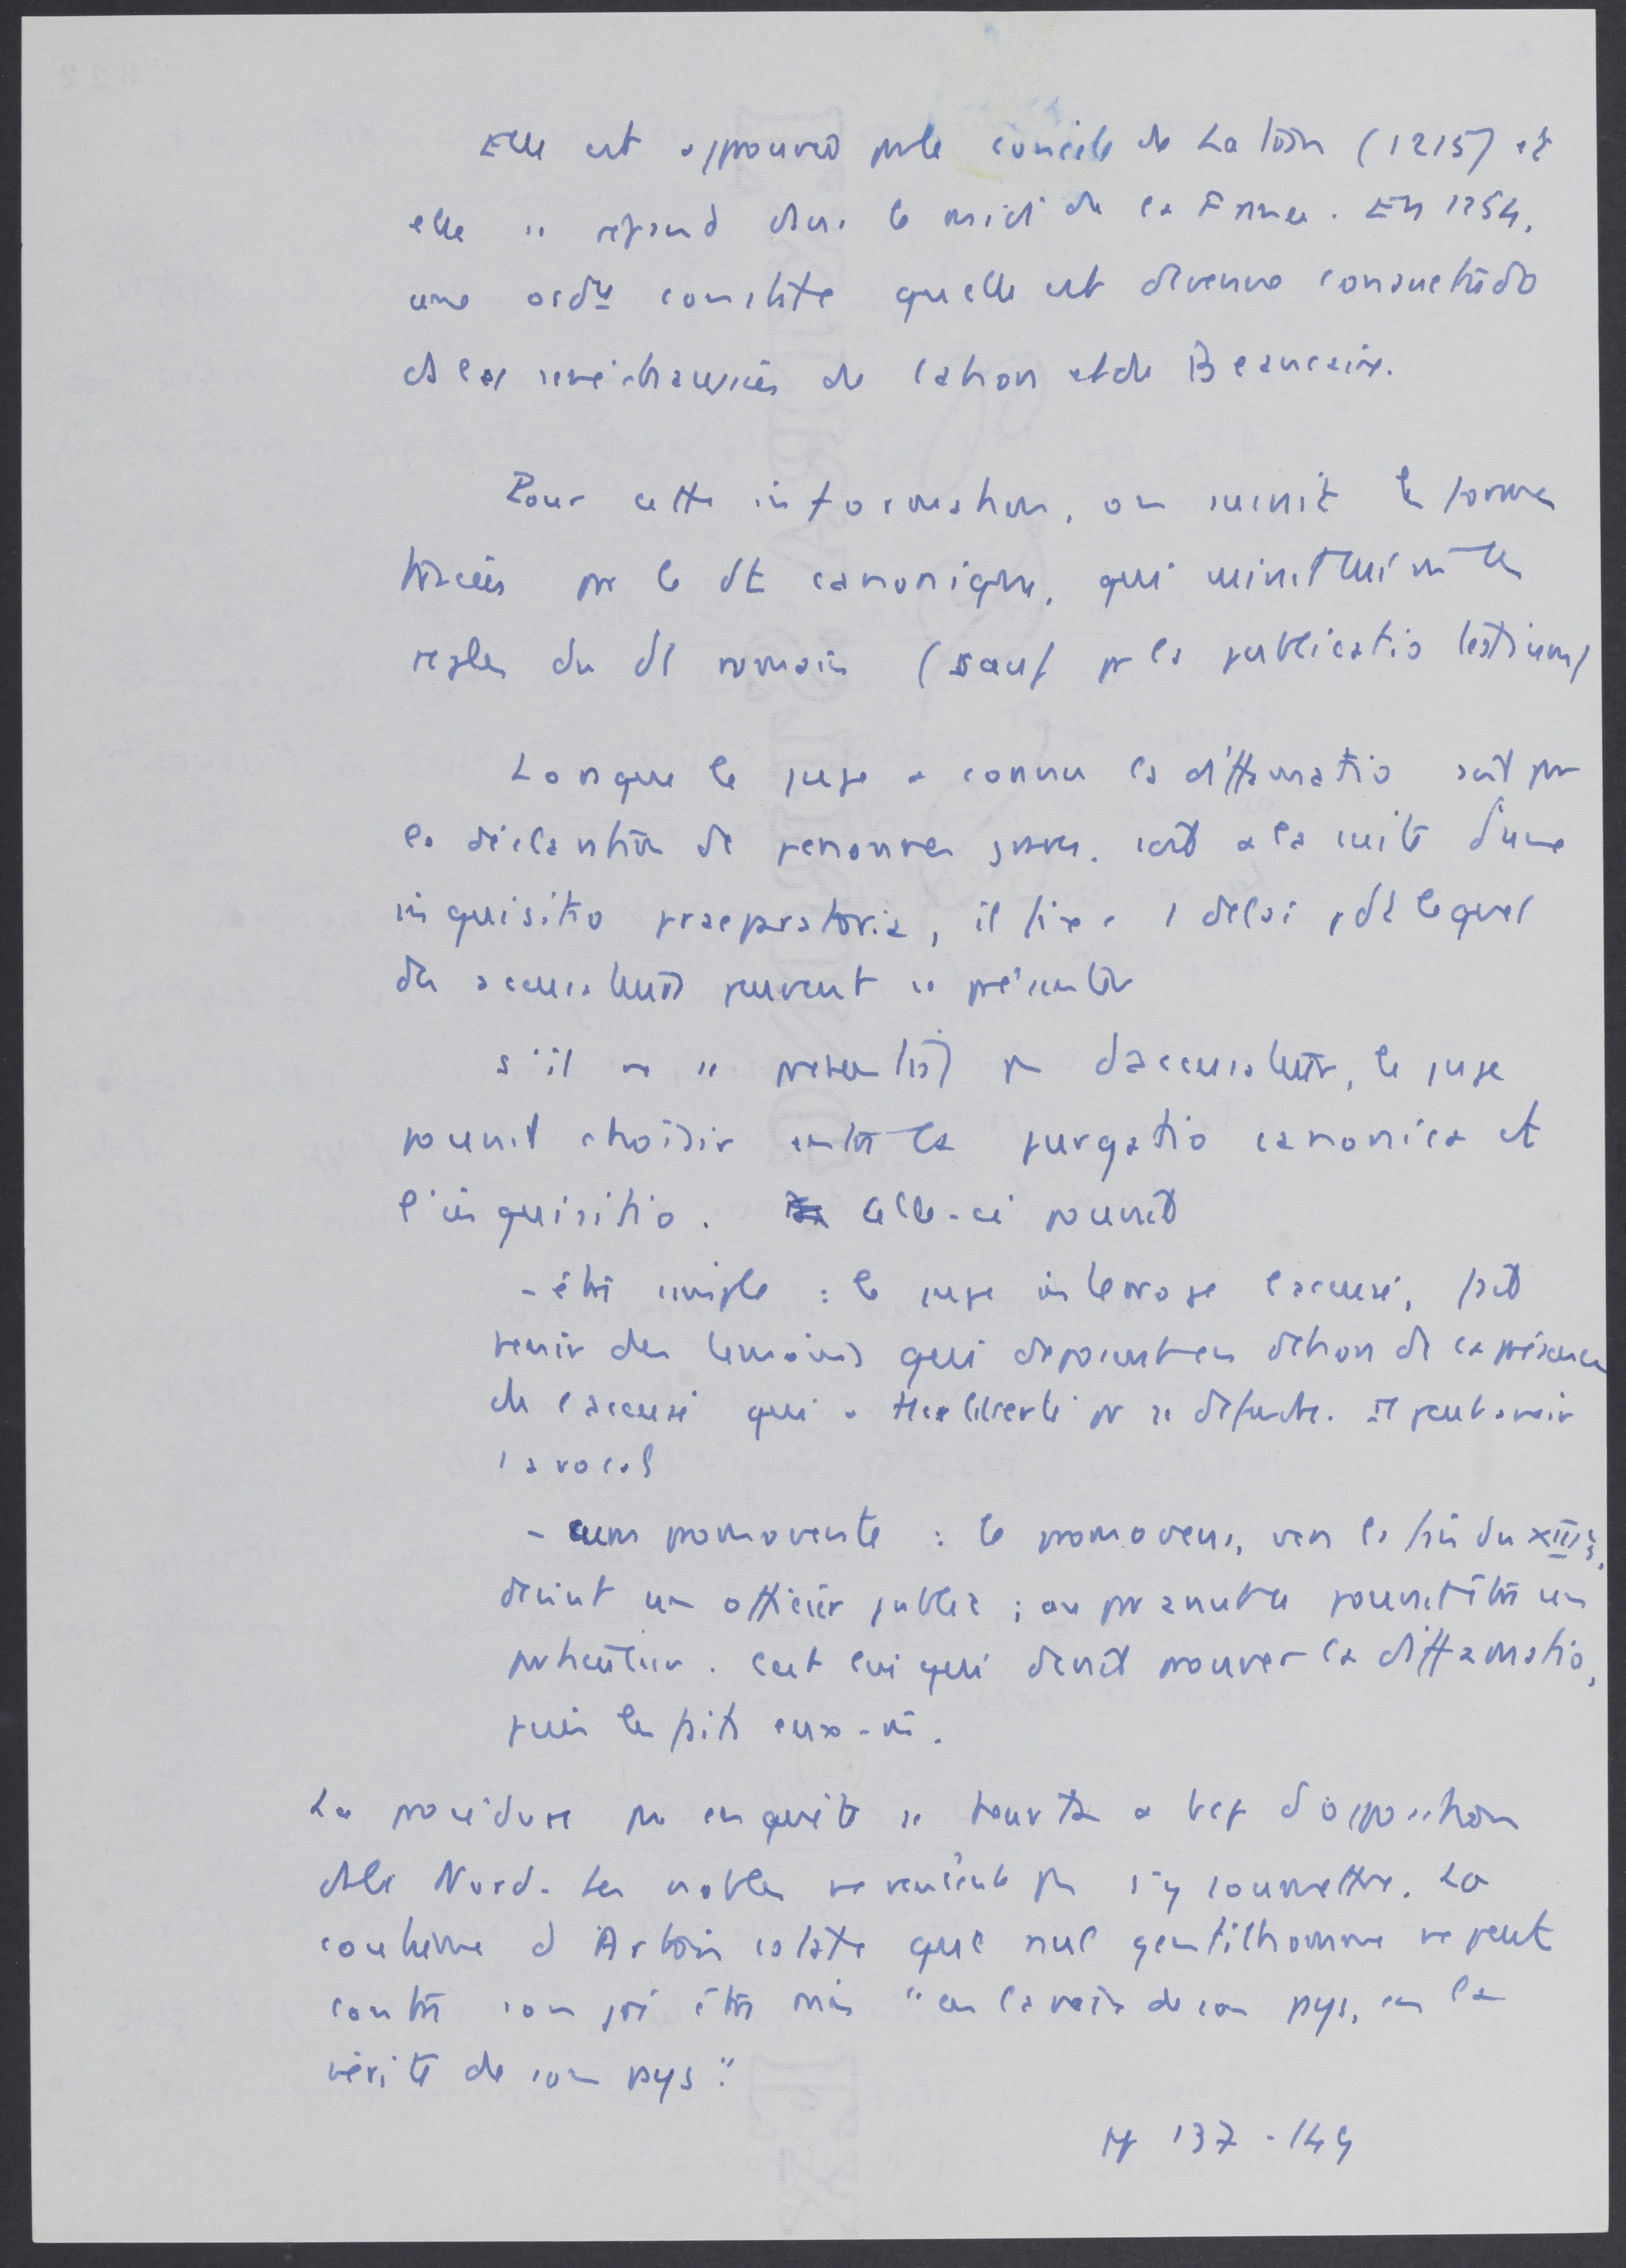 Elle est approuvée par le concile de Latran (1215) et
elle se répand dans le midi de la France. En 1254,
une ordce constate qu'elle est devenue consuetudo
ds les sénéchaussées de Cahors et de Beaucaire.
Pour cette information, on suivit les formes
tracées par le dt canonique, qui suivait lui-m les
règles du dt romain (sauf pr la publicatio testium)
Lorsque le juge a connu la diffamatio soit par
la déclaration de personnes graves, soit à la suite d'une
inquisitio praeparatoria, il fixe 1 délai pdt lequel
des accusateurs peuvent se présenter
s'il ne se présentait pas d'accusateur, le juge
pouvait choisir entre la purgatio canonica et
l'inquisitio. Celle-ci pouvait
- être simple : le juge interroge l'accusé, fait
venir des témoins qui déposent en dehors de la présence
de l'accusé qui a tte liberté pr se défendre. Il peut avoir
1 avocat
- cum promovente : le promovens, vers la fin du XIIIe,
devint un officier public ; auparavant ce pouvait être un
particulier. C'est lui qui devait prouver la diffamatio,
puis les faits eux-m.
La procédure par enquête se heurta à bcp d'opposition
ds le Nord. Les nobles ne veulent pas s'y soumettre. La
coutume d'Artois constate que nul gentilhomme ne peut
contre son gré être mis "en la voix de son pays, en la
vérité de son pays".
pp 137-149